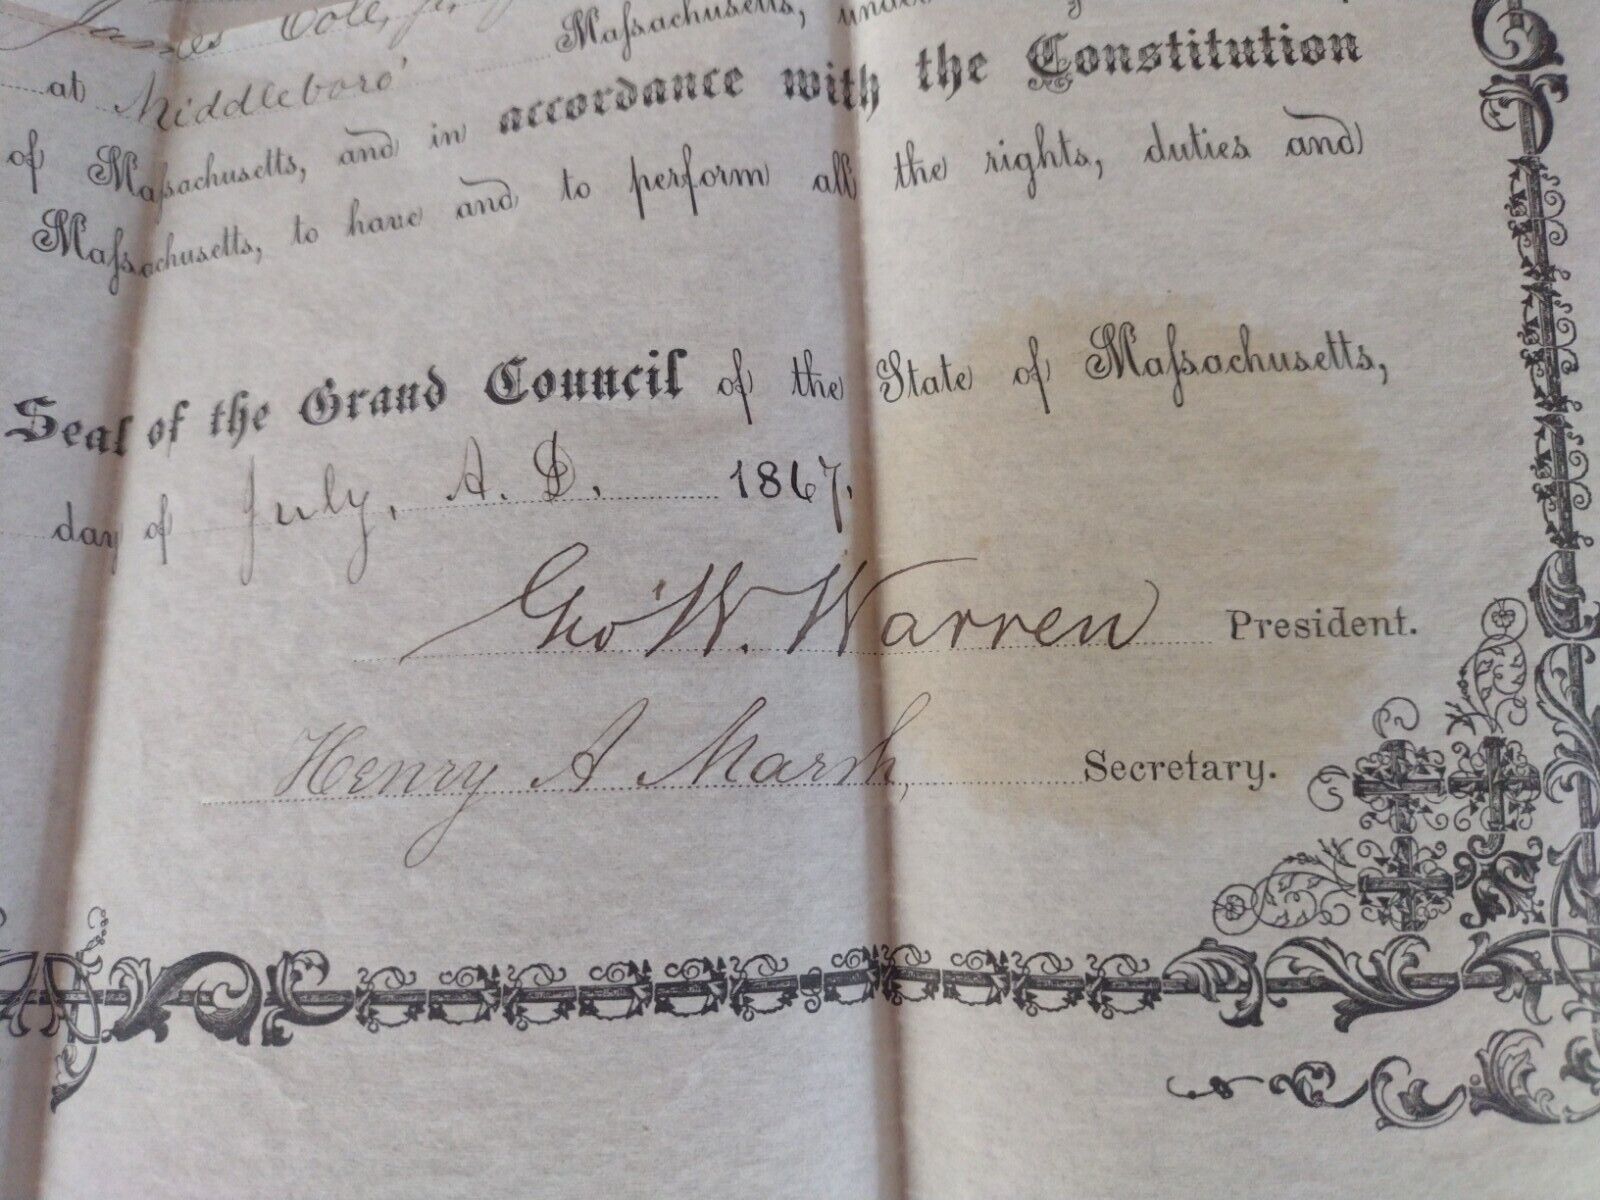 James Cole, Jr.
Maſsachusetts, under
at Middleboro'
accordance with the Constitution
of Maſsachusetts, and in
Maſsachusetts, to have and to perform all the rights, duties and
Seal of the Grand Council of the State of Maſsachusetts,
day of July, A. D. 1867.
Geo W. Warren President.
Henry A Marsh, Secretary.